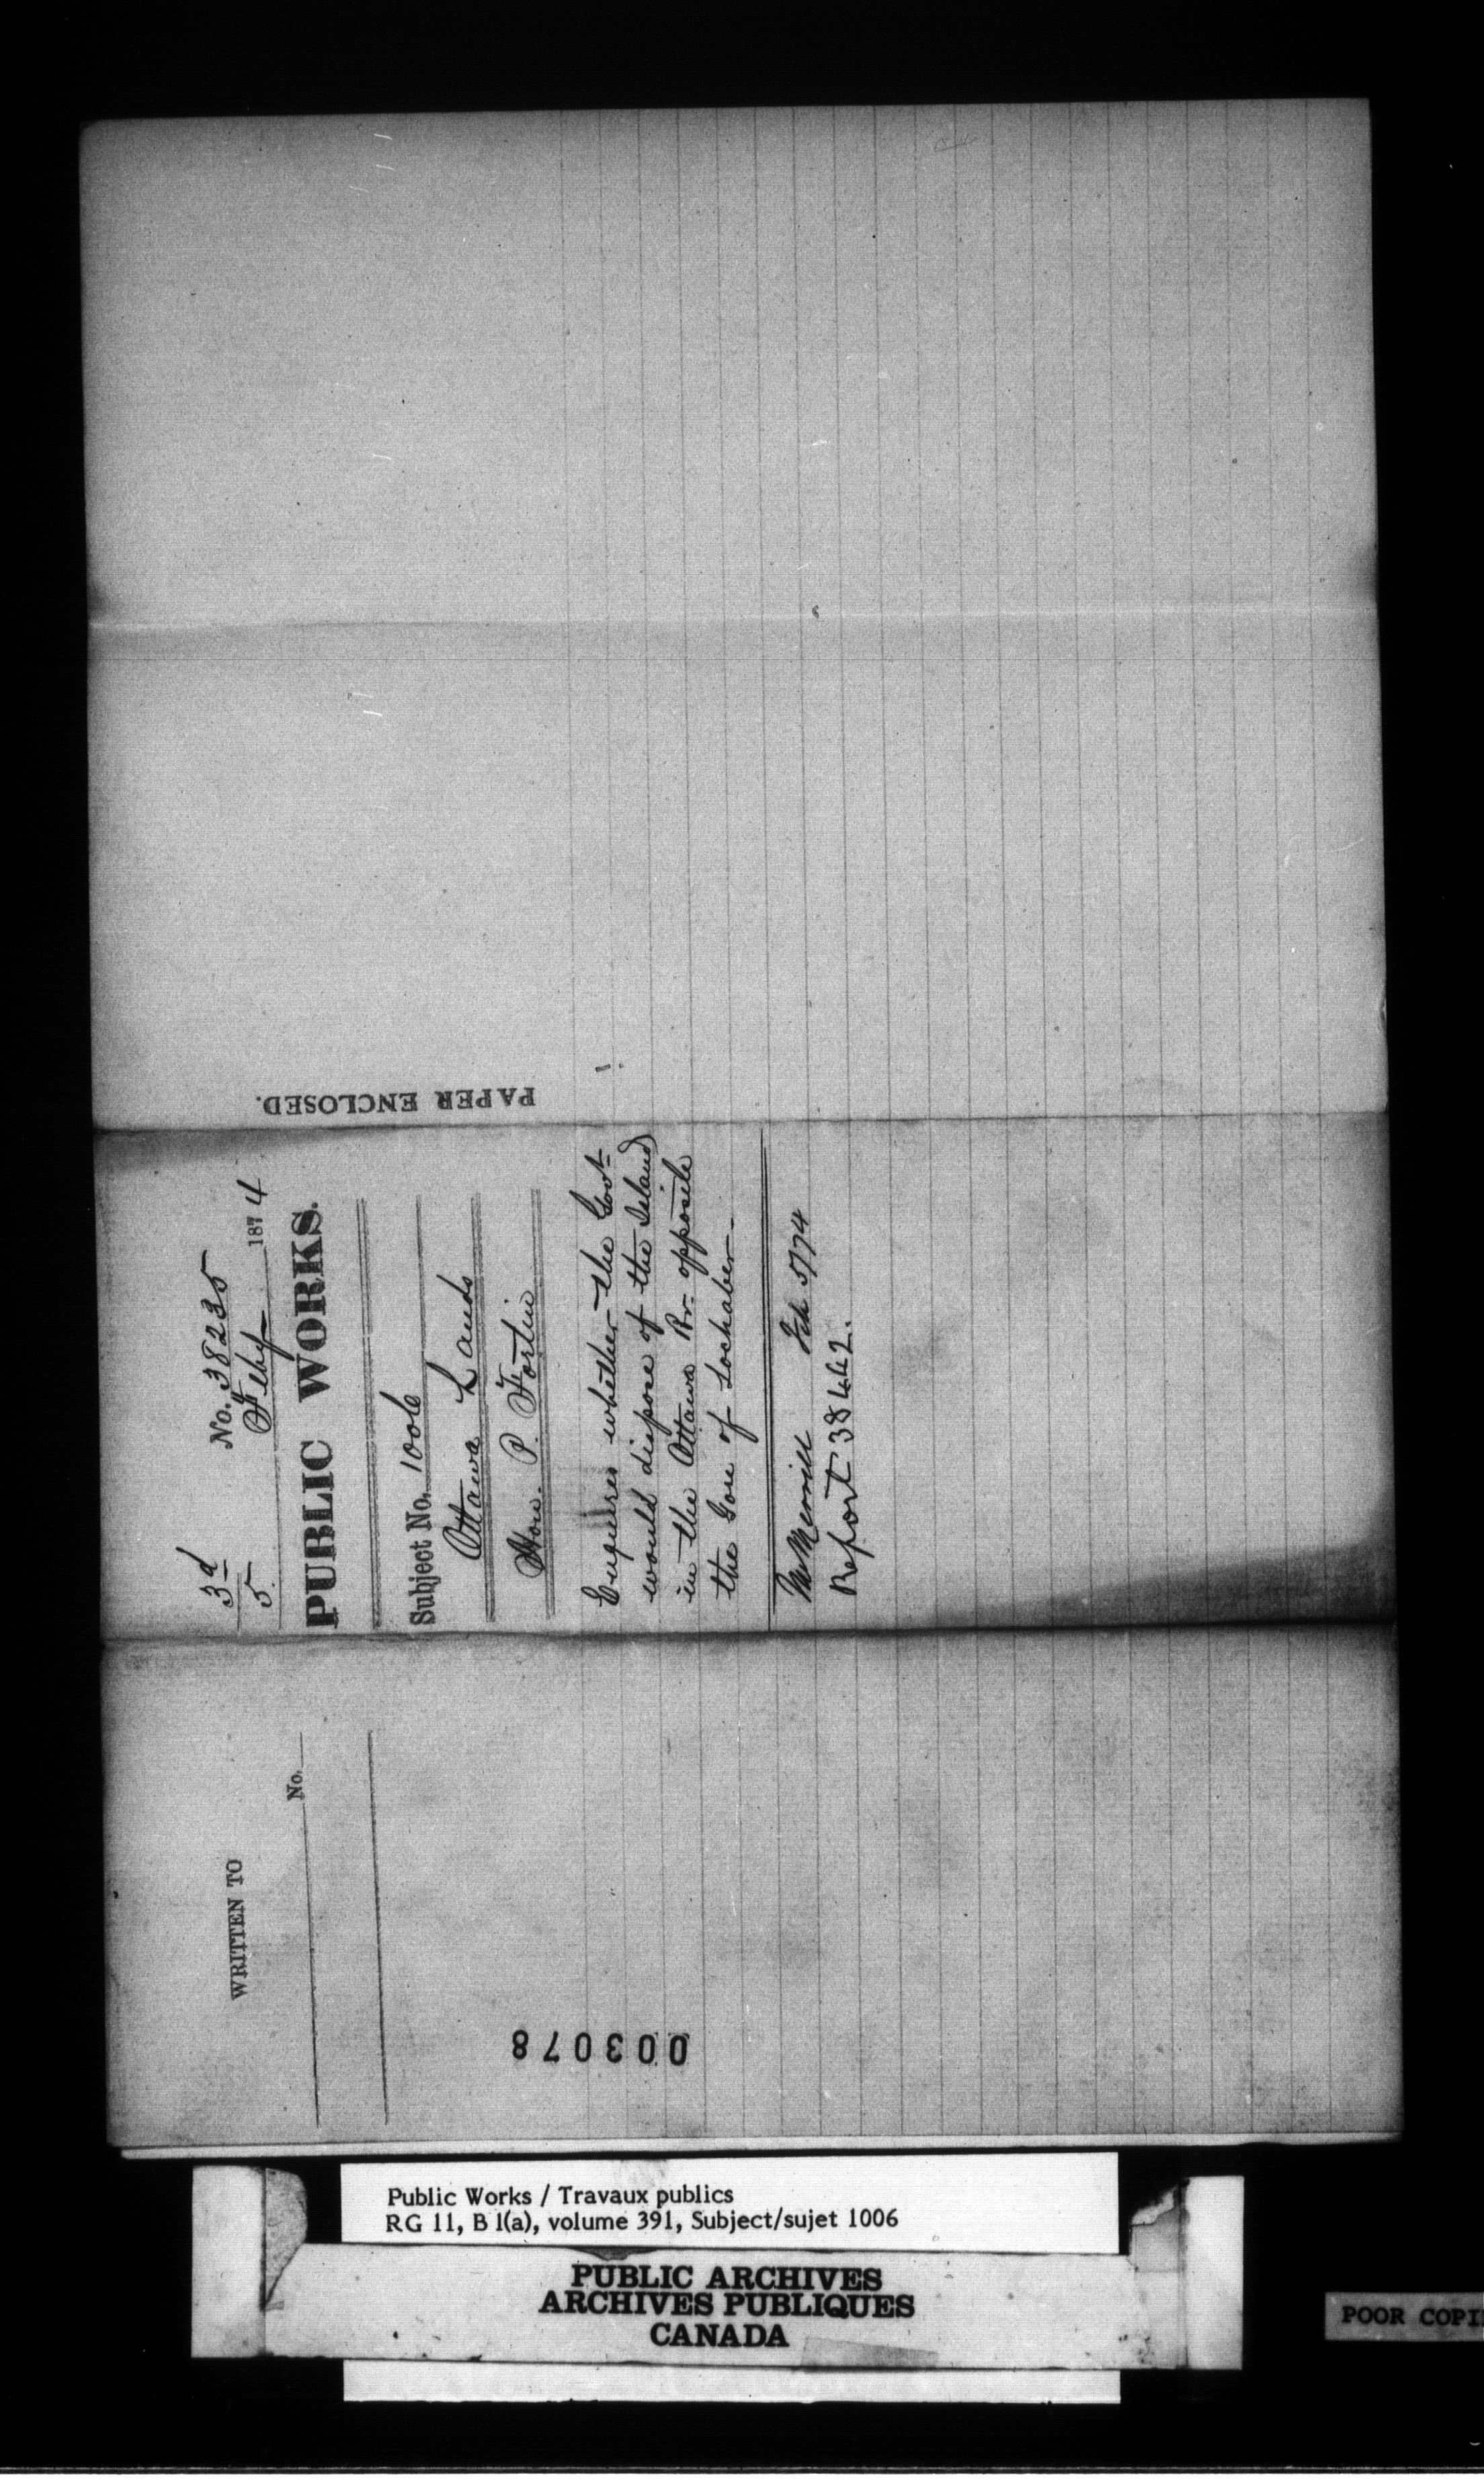 PAPER ENCLOSED.
3d No. 38235
5 Feby 1874
PUBLIC WORKS.
Subject No. 1006
Ottawa Lands
Hon. P. Fortin
Enquires whether the Govt
would dispose of the Island
in the Ottawa Rr. opposite
the Gore of Lochaber
Mr Merrill Feb 5/74
Report 38442.
WRITTEN TO
No.
003078
Public Works / Travaux publics
RG 11, B 1(a), volume 391, Subject/sujet 1006
PUBLIC ARCHIVES
ARCHIVES PUBLIQUES
CANADA
POOR COPI